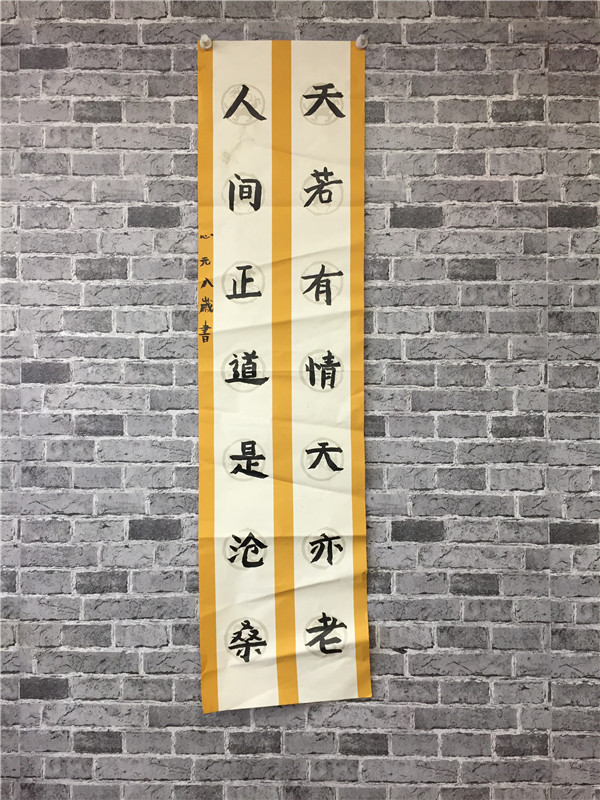 天若有情天亦老
人间正道是沧桑
心元八歲書